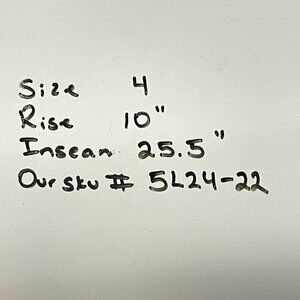 Size 4
Rise 10"
Inseam 25.5"
Our sku # 5L24-22